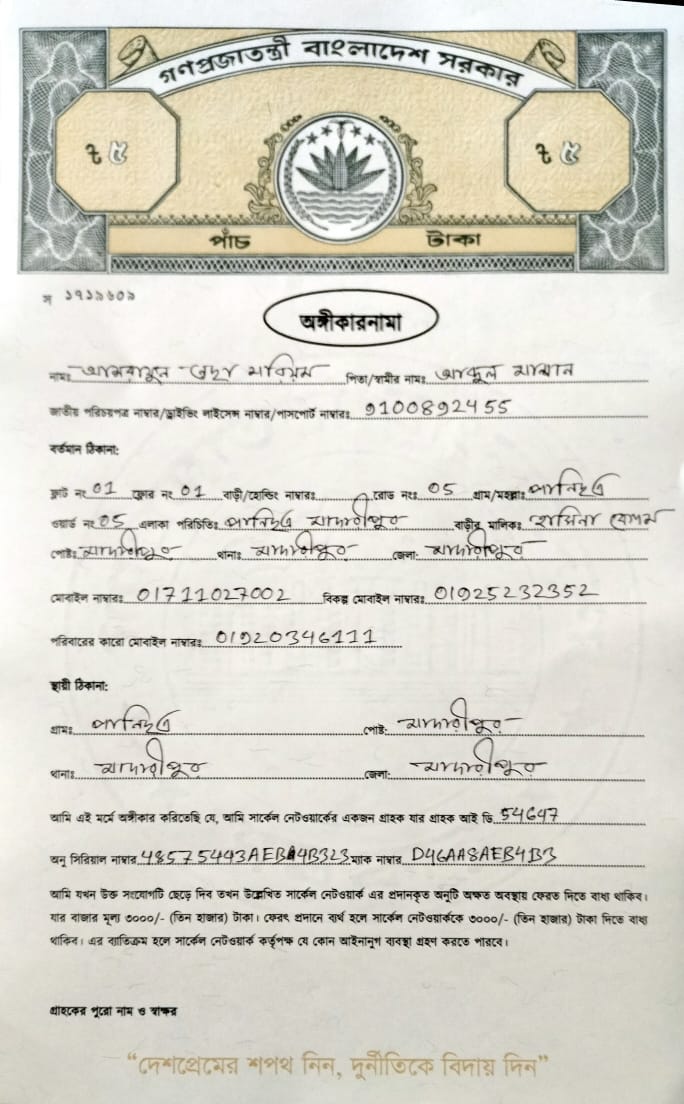 গণপ্রজাতন্ত্রী বাংলাদেশ সরকার
৳ ৫ ৳ ৫
পাঁচ টাকা
স ১৭১৯৬০৯
অঙ্গীকারনামা
নামঃ মারিয়ম পিতা/স্বামীর নামঃ মান্নান
জাতীয় পরিচয়পত্র নাম্বার/ড্রাইভিং লাইসেন্স নাম্বার/পাসপোর্ট নাম্বারঃ 9100892455
বর্তমান ঠিকানা:
ফ্লাট নং 01 ফ্লোর নং 01 বাড়ী/হোল্ডিং নাম্বারঃ রোড নংঃ 05 গ্রাম/মহল্লাঃ পানিছত্র
ওয়ার্ড নং 05 এলাকা পরিচিতিঃ পানিছত্র মাদারীপুর বাড়ীর মালিকঃ হাসিনা বেগম
পোষ্টঃ মাদারীপুর থানাঃ মাদারীপুর জেলা: মাদারীপুর
মোবাইল নাম্বারঃ 01711027002 বিকল্প মোবাইল নাম্বারঃ 01925232352
পরিবারের কারো মোবাইল নাম্বারঃ 01920346111
স্থায়ী ঠিকানা:
গ্রামঃ পানিছত্র পোষ্ট: মাদারীপুর
থানাঃ মাদারীপুর জেলা: মাদারীপুর
আমি এই মর্মে অঙ্গীকার করিতেছি যে, আমি সার্কেল নেটওয়ার্কের একজন গ্রাহক যার গ্রাহক আই ডি 54647
অনু সিরিয়াল নাম্বার 48575443AEB4B323 ম্যাক নাম্বার D46AA8AEB4B3
আমি যখন উক্ত সংযোগটি ছেড়ে দিব তখন উল্লেখিত সার্কেল নেটওয়ার্ক এর প্রদানকৃত অনুটি অক্ষত অবস্থায় ফেরত দিতে বাধ্য থাকিব।
যার বাজার মূল্য ৩০০০/- (তিন হাজার) টাকা। ফেরৎ প্রদানে ব্যর্থ হলে সার্কেল নেটওয়ার্ককে ৩০০০/- (তিন হাজার) টাকা দিতে বাধ্য
থাকিব। এর ব্যতিক্রম হলে সার্কেল নেটওয়ার্ক কর্তৃপক্ষ যে কোন আইনানুগ ব্যবস্থা গ্রহণ করতে পারবে।
গ্রাহকের পুরো নাম ও স্বাক্ষর
“দেশপ্রেমের শপথ নিন, দুর্নীতিকে বিদায় দিন”